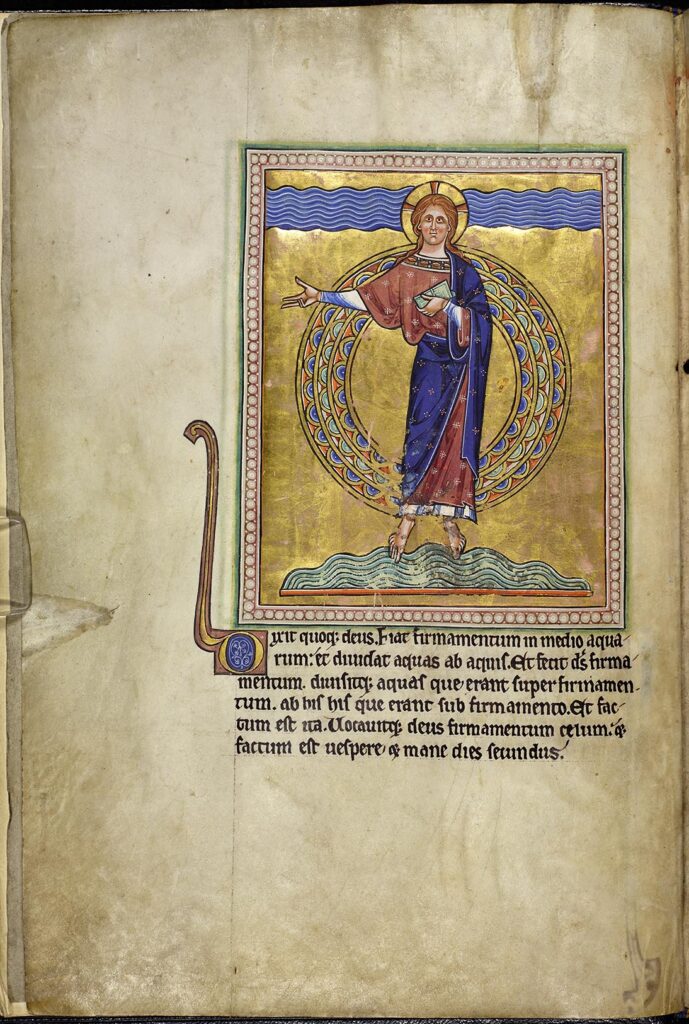 Dixit quoq; deus. Fiat firmamentum in medio aqua-
rum: et diuidat aquas ab aquis. Et fecit ds firma-
mentum. diuisitq; aquas que erant super firmamen-
tum. ab his his que erant sub firmamento. Et fac-
tum est ita. Uocauitq; deus firmamentum celum: &
factum est uespere, & mane dies secundus.